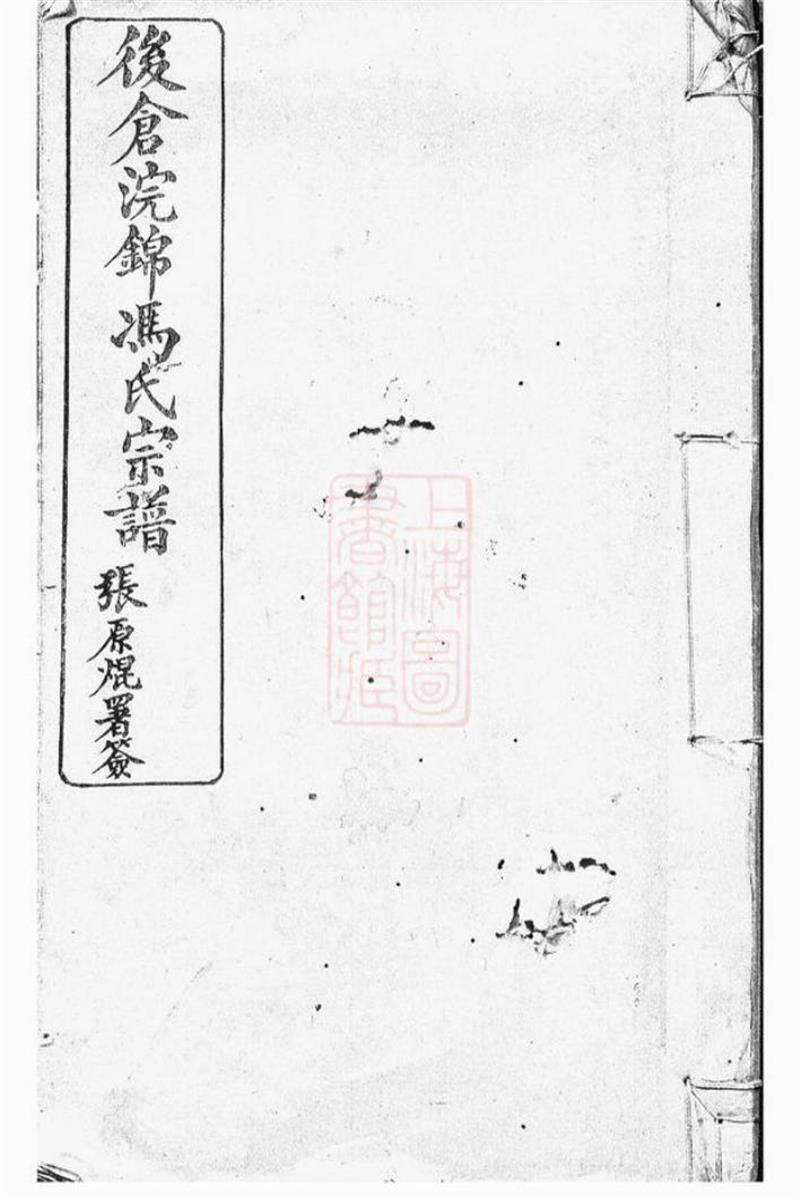 後倉浣錦馮氏宗譜 張原焜署簽
上海圖
書館藏